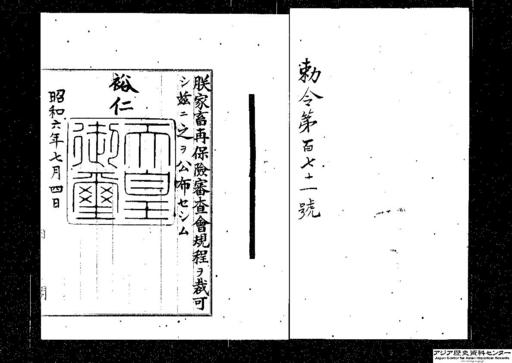 勅令第百七十一號
朕家畜再保險審査會規程ヲ裁可
シ茲ニ之ヲ公布セシム
裕仁
天皇
御璽
昭和六年七月四日
アジア歴史資料センター
Japan Center for Asian Historical Records